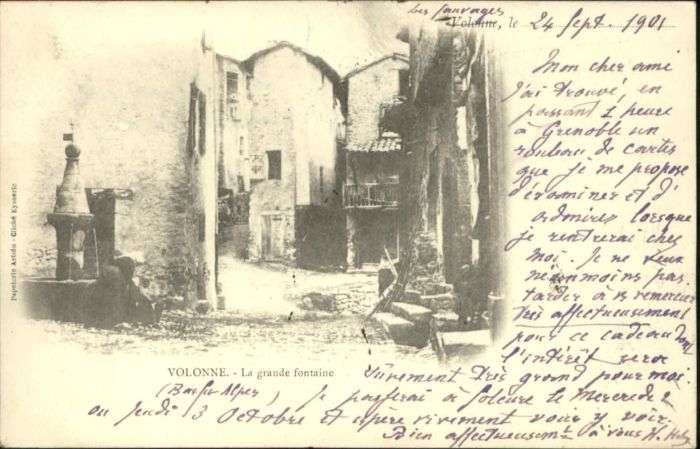 les Sauvages
Volonne, le 24 Sept. 1901
Mon cher ami
J'ai trouvé, en
passant 1 heure
à Grenoble un
rouleau de cartes
que je me propose
d'examiner et d'
admirer lorsque
je rentrerai chez
moi. Je ne veux
néanmoins pas
tarder à vs remercier
très affectueusement
pour ce cadeau dont
l'intérêt sera
sûrement très grand pour moi.
(Basses Alpes) Je passerai à Soleure le Mercredi 2
ou Jeudi 3 Octobre et espère vivement vous y voir.
Bien affectueusemt à vous H.
VOLONNE. - La grande fontaine
Papeterie - Cliché Eysseric